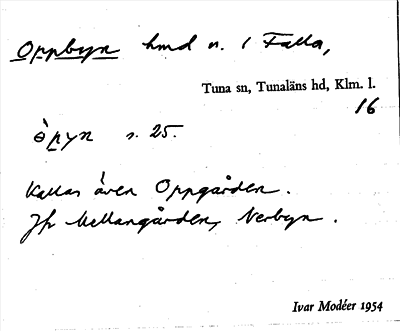 Oppbyn hmd n. 1 Falla,
Tuna sn, Tunaläns hd, Klm. l.
16
òpyn s. 25.
Kallas även Oppgården.
Jfr Mellangården, Nerbyn.
Ivar Modéer 1954